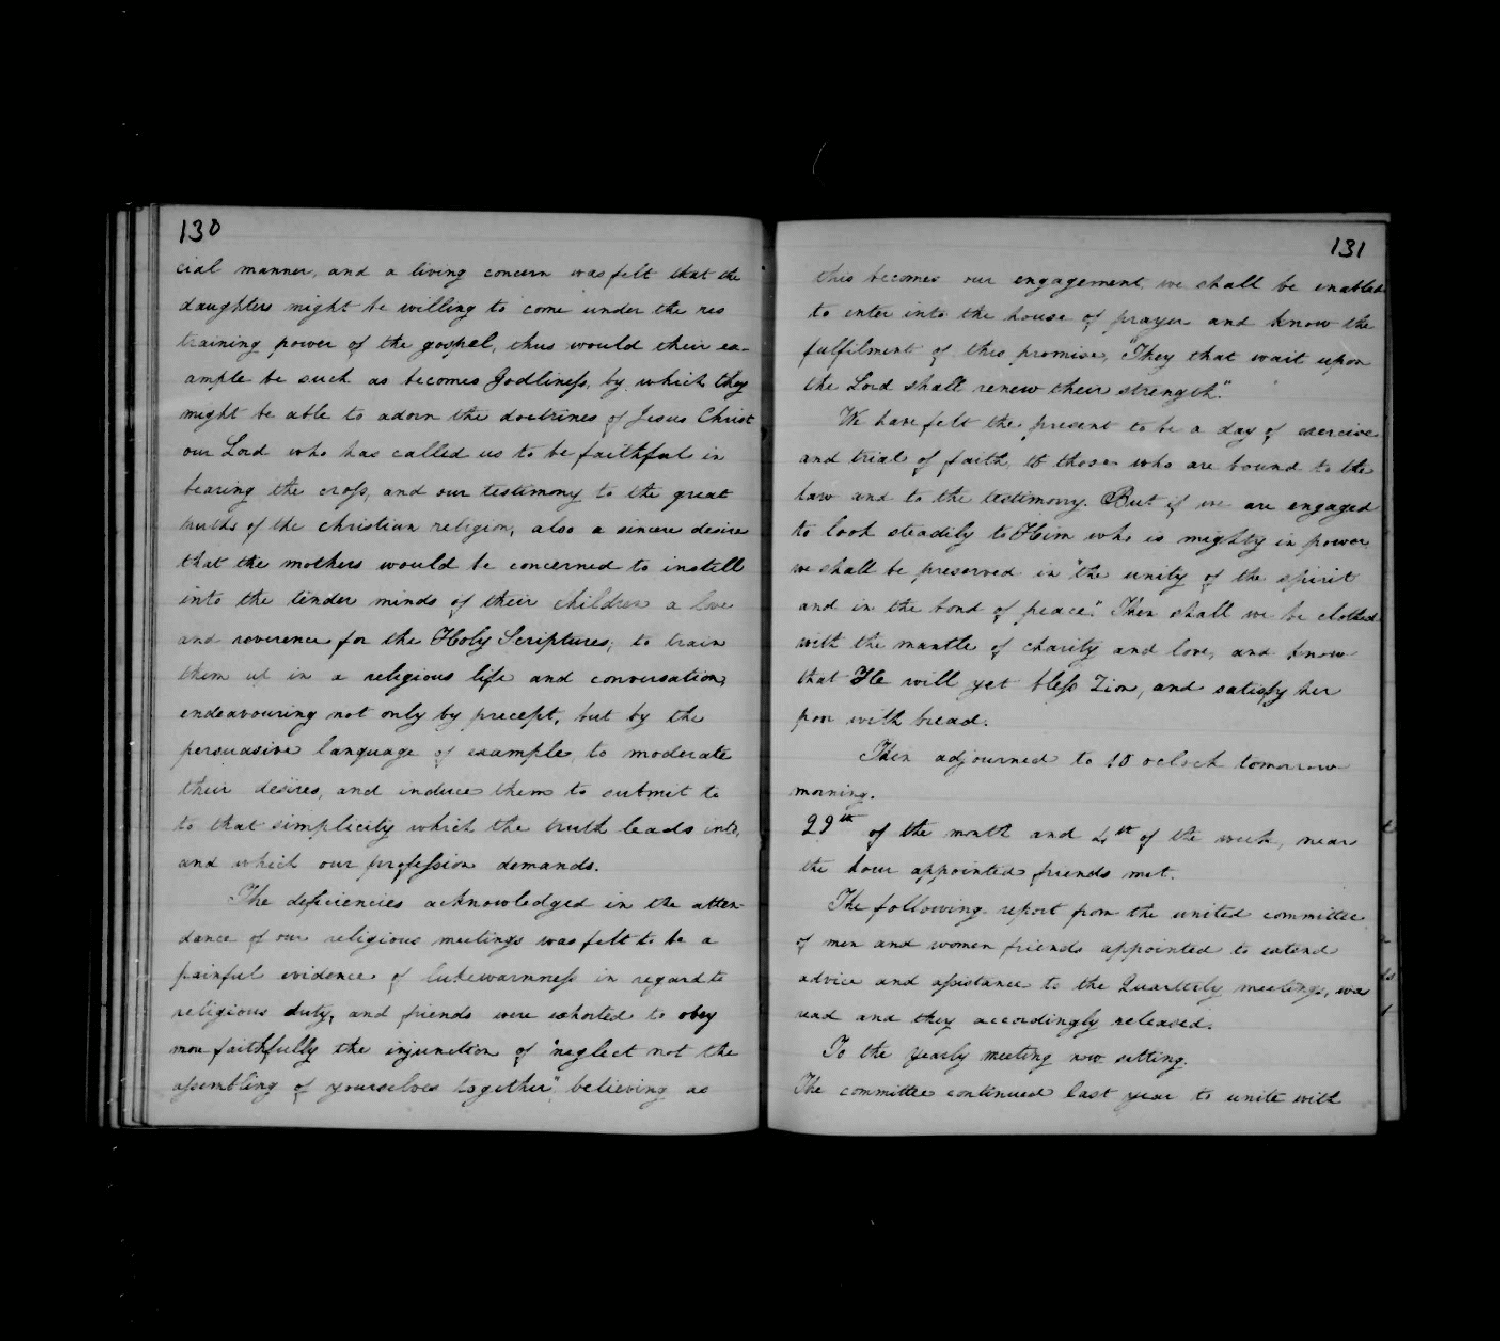 130
cial manner, and a living concern was felt that the
daughters might be willing to come under the res
training power of the gospel, thus would their ex-
ample be such as becomes Godliness, by which they
might be able to adorn the doctrines of Jesus Christ
our Lord who has called us to be faithful in
bearing the cross, and our testimony to the great
truths of the christian religion; also a sincere desire
that the mothers would be concerned to instill
into the tender minds of their children a love
and reverence for the Holy Scriptures; to train
them up in a religious life and conversation,
endeavouring not only by precept, but by the
persuasive language of example, to moderate
their desires, and induce them to submit to
to that simplicity which the truth leads into,
and which our profession demands.
The deficiencies acknowledged in the atten-
dance of our religious meetings was felt to be a
painful evidence of lukewarmness in regard to
religious duty, and friends were exhorted to obey
more faithfully the injunction of "neglect not the
assembling of yourselves together", believing as
131
this becomes our engagement we shall be enabled
to enter into the house of prayer and know the
fulfilment of this promise, "They that wait upon
the Lord shall renew their strength."
We have felt the present to be a day of exercise
and trial of faith, to those who are bound to the
law and to the testimony. But if we are engaged
to look steadily to Him who is mighty in power
we shall be preserved in "the unity of the spirit
and in the bond of peace." Then shall we be clothed
with the mantle of charity and love, and know
that He will yet bless Zion, and satisfy her
poor with bread.
Then adjourned to 10 oclock tomorrow
morning.
22th of the month and 4th of the week, near
the hour appointed friends met.
The following report from the united committee
of men and women friends appointed to extend
advice and assistance to the Quarterly meetings, was
read and they accordingly released.
To the yearly meeting now sitting.
The committee continued last year to unite with